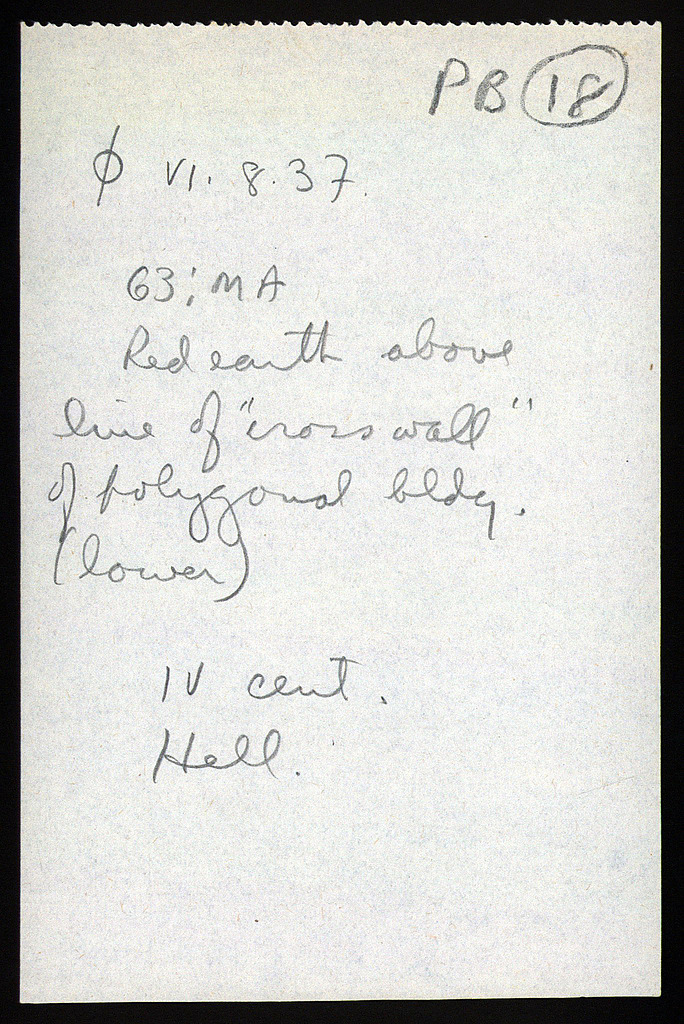 PB 18
Φ VI. 8. 37.
63; MA
Red earth above
line of "cross wall"
of polygonal bldg.
(lower)
IV cent.
Hell.